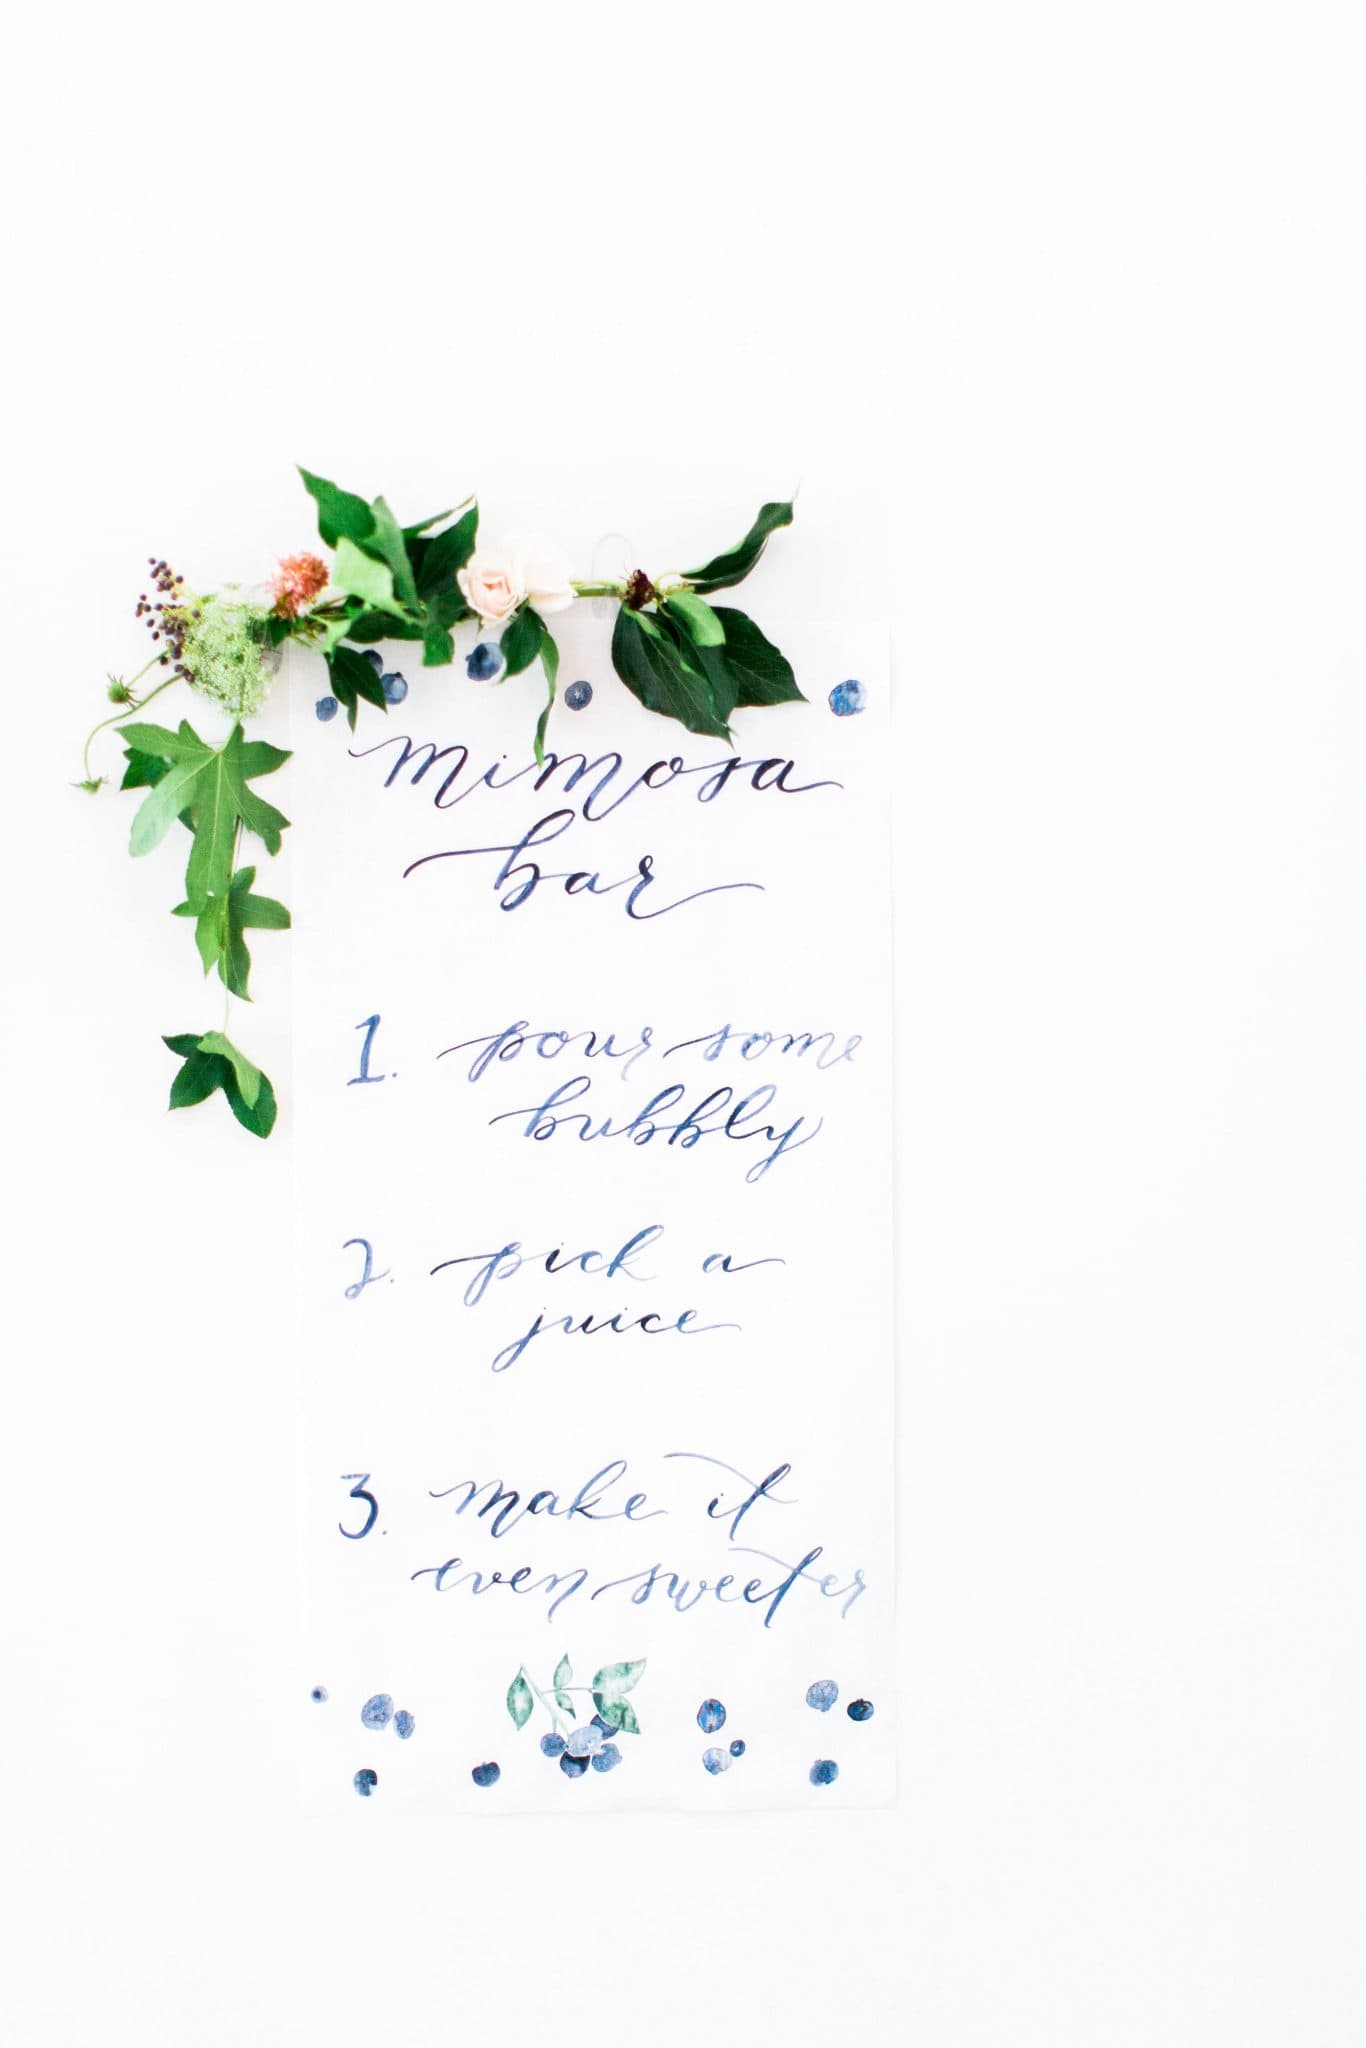 mimosa
bar
1. pour some
bubbly
2. pick a
juice
3. make it
even sweeter